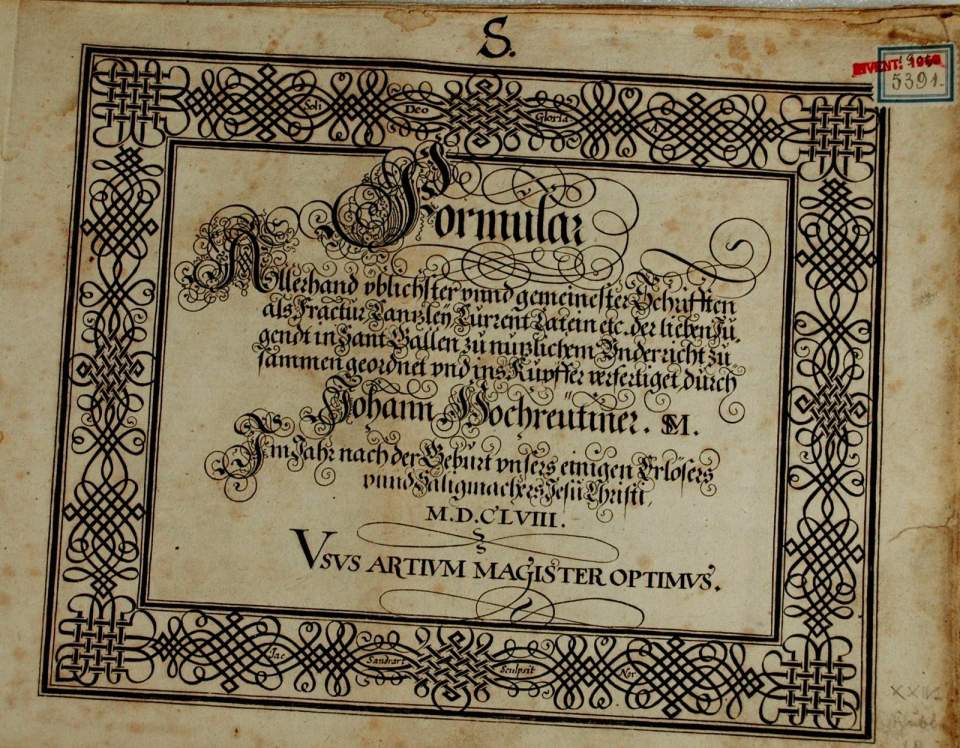 S.
INVENT: 1960
5391.
Soli Deo Gloria A
Formular
Allerhand ublichster vnnd gemeinester Schrifften
als Fractur Cantzley Current Latein etc. der lieben Ju,
gendt in Sant Gallen zu nutzlichem Vnderricht zu
sammen geordnet vnd ins Kupffer verfertiget durch
Johann Hochreutiner. SM.
Im Jahr nach der Geburt vnsers einigen Erlösers
vnnd Säligmachers Jesu Christi,
M.D.CLVIII.
VSVS ARTIVM MAGISTER OPTIMVS.
Jac Sandrart Sculpsit Nor